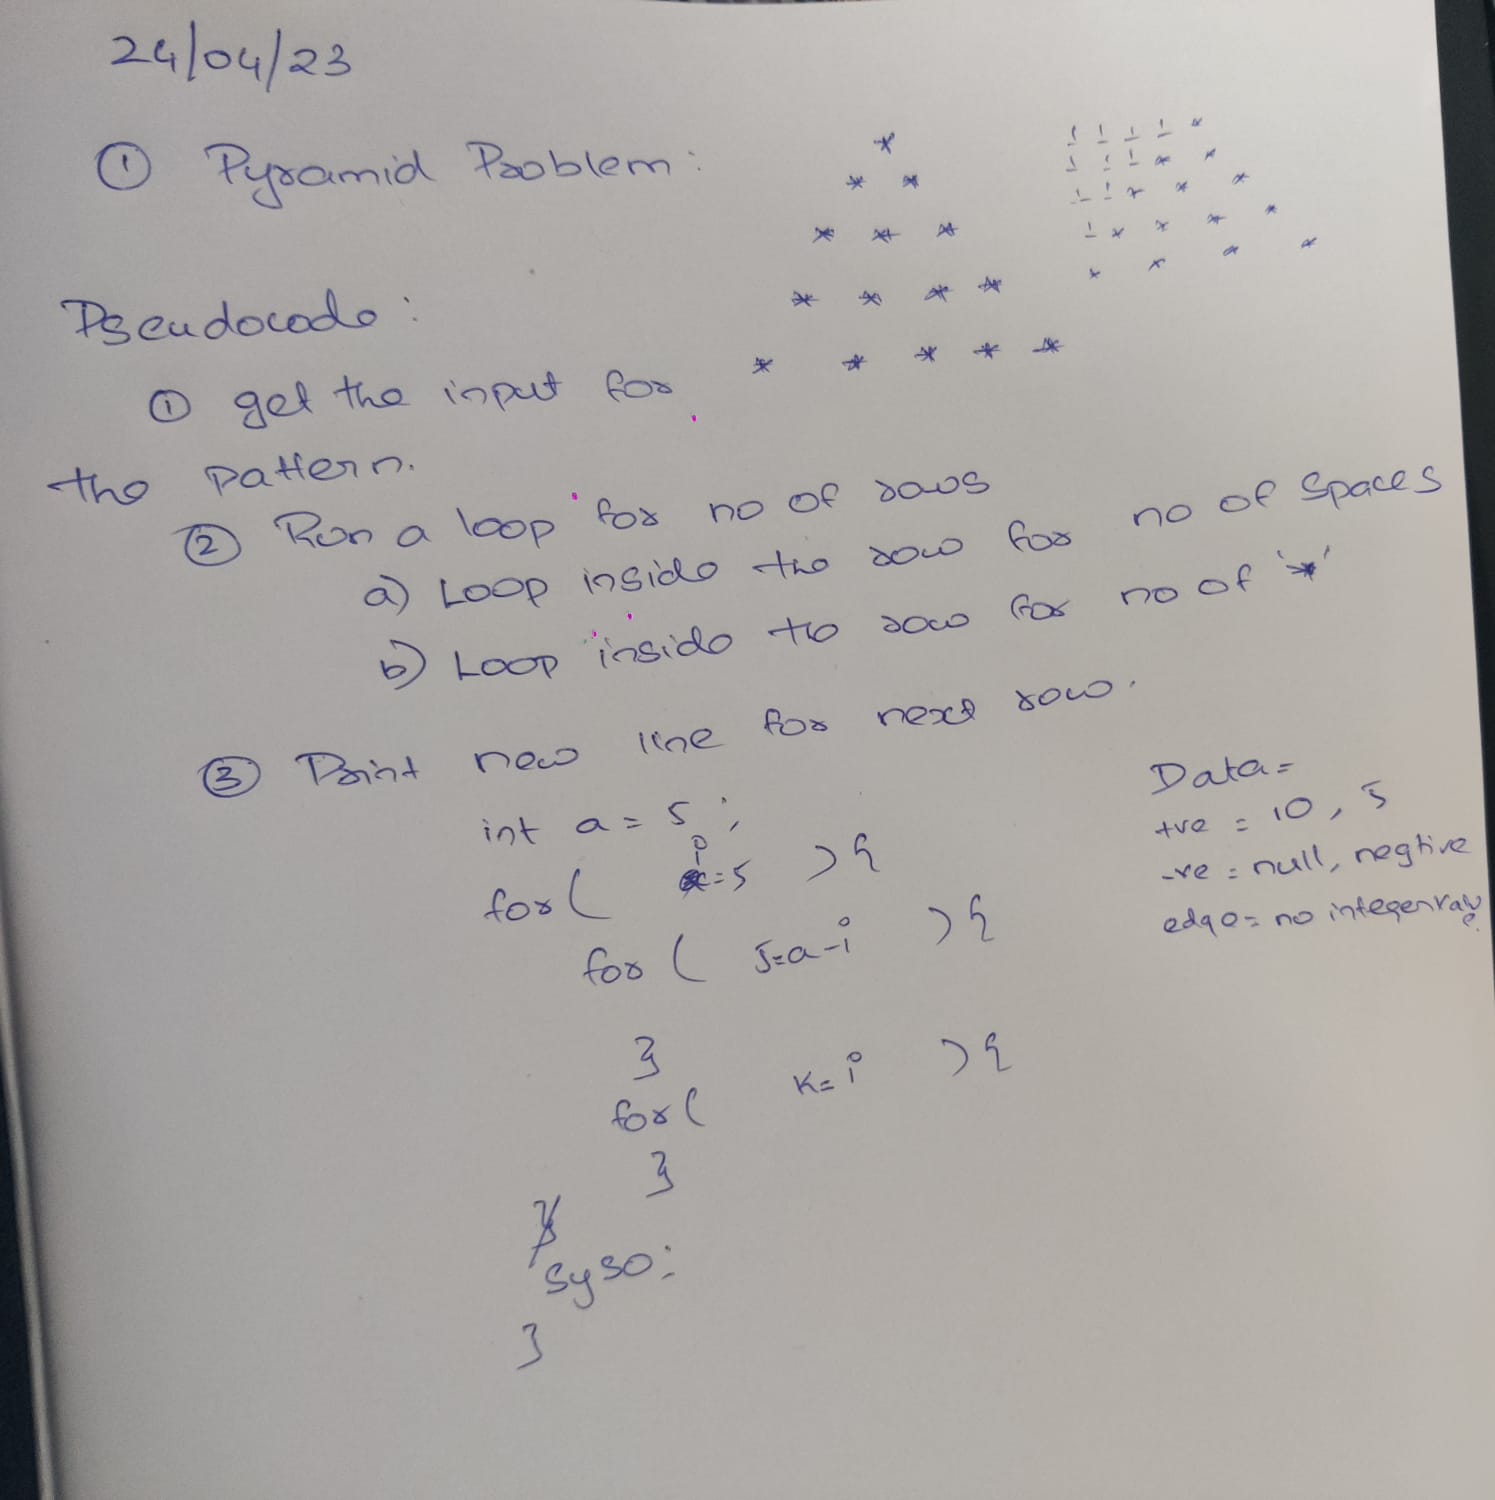 24/04/23
① Pyramid Problem :
*
* *
* * *
* * * *
* * * * *
! ! ! ! *
! ! ! * *
! ! * * *
! * * * *
* * * *
Pseudocode :
① get the input for
the pattern.
② Run a loop for no of rows
a) Loop inside the row for no of Spaces
b) Loop inside the row for no of '*'
③ Print new line for next row.
int a = 5 ;
for( i=5 ) {
for ( J=a-i ) {
}
for( k= i ) {
}
syso;
}
Data=
+ve = 10, 5
-ve = null, negtive
edge= no integer